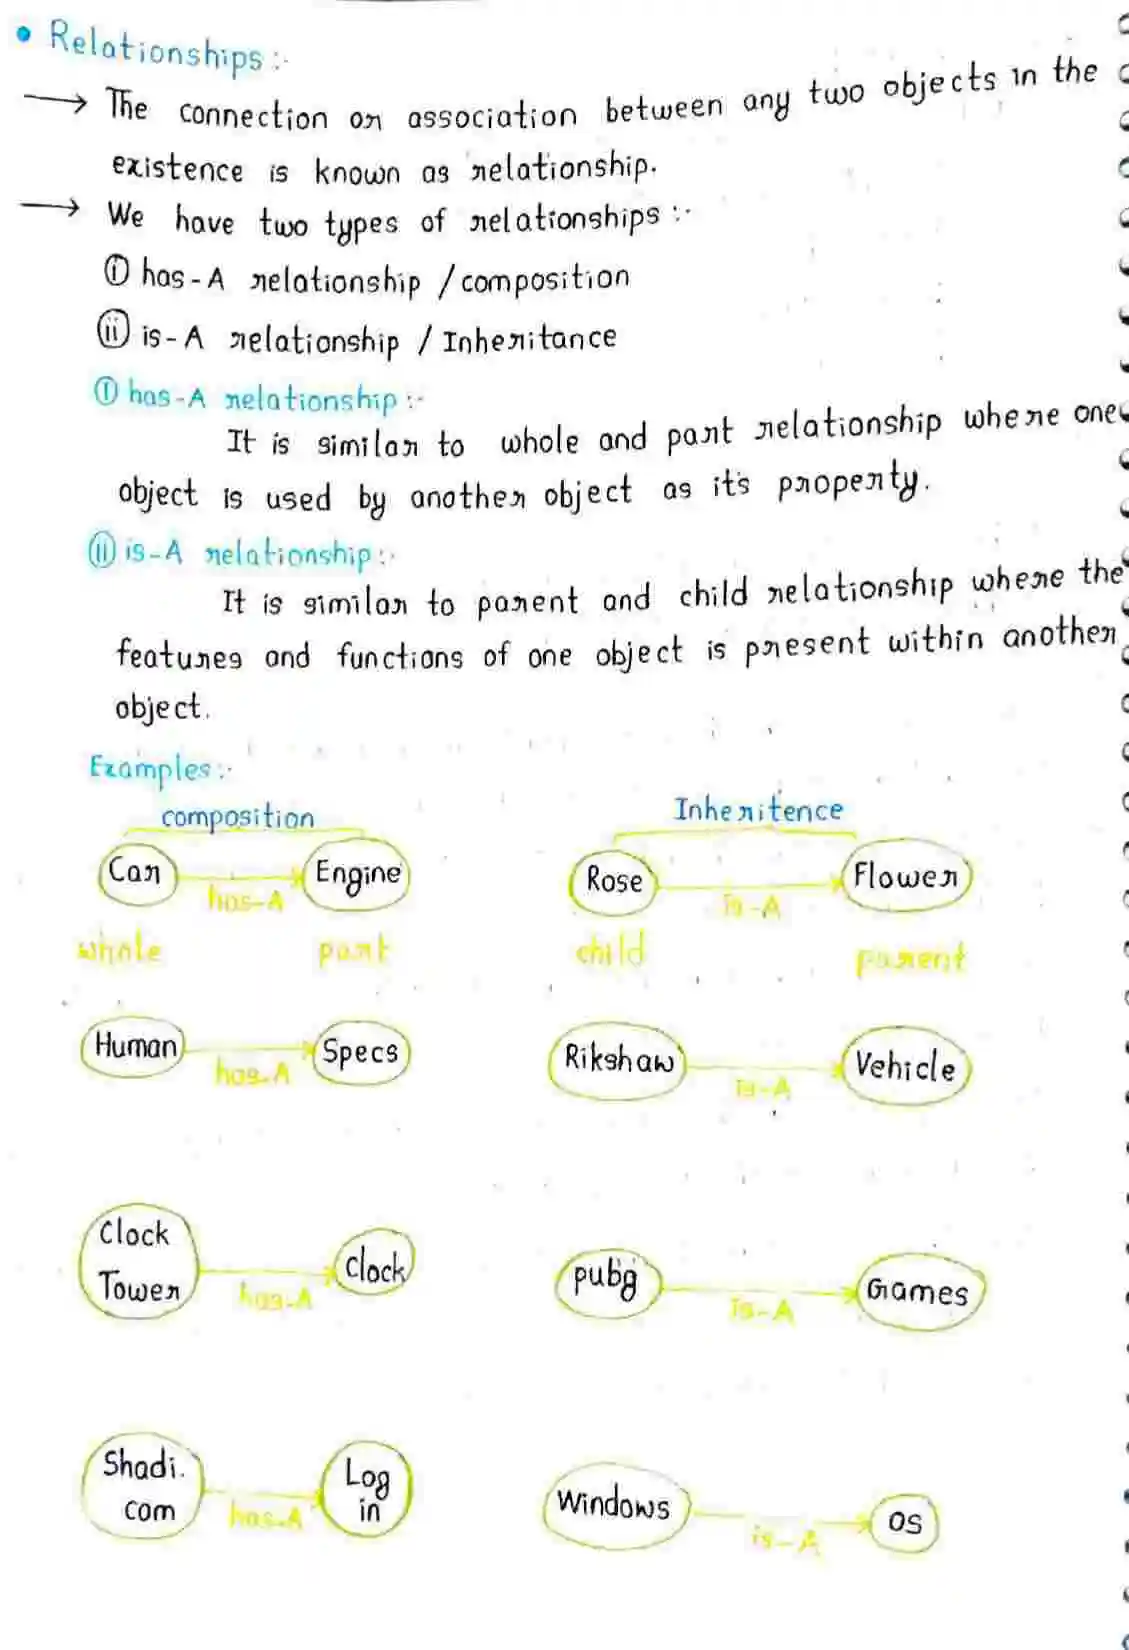 • Relationships :-
→ The connection or association between any two objects in the
existence is known as relationship.
→ We have two types of relationships :-
(i) has-A relationship / composition
(ii) is-A relationship / Inheritance
(i) has-A relationship :-
It is similar to whole and part relationship where one
object is used by another object as it's property.
(ii) is-A relationship :-
It is similar to parent and child relationship where the
features and functions of one object is present within another
object.
Examples :-
composition
Inheritence
Car has-A Engine
Rose is-A Flower
whole part
child parent
Human has-A Specs
Rikshaw is-A Vehicle
Clock
Tower has-A clock
pubg is-A Games
Shadi.
com has-A Log
in
Windows is-A OS